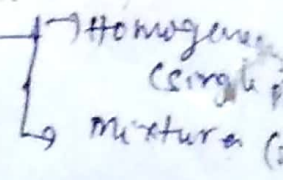 Homogene
(single p
mixture (